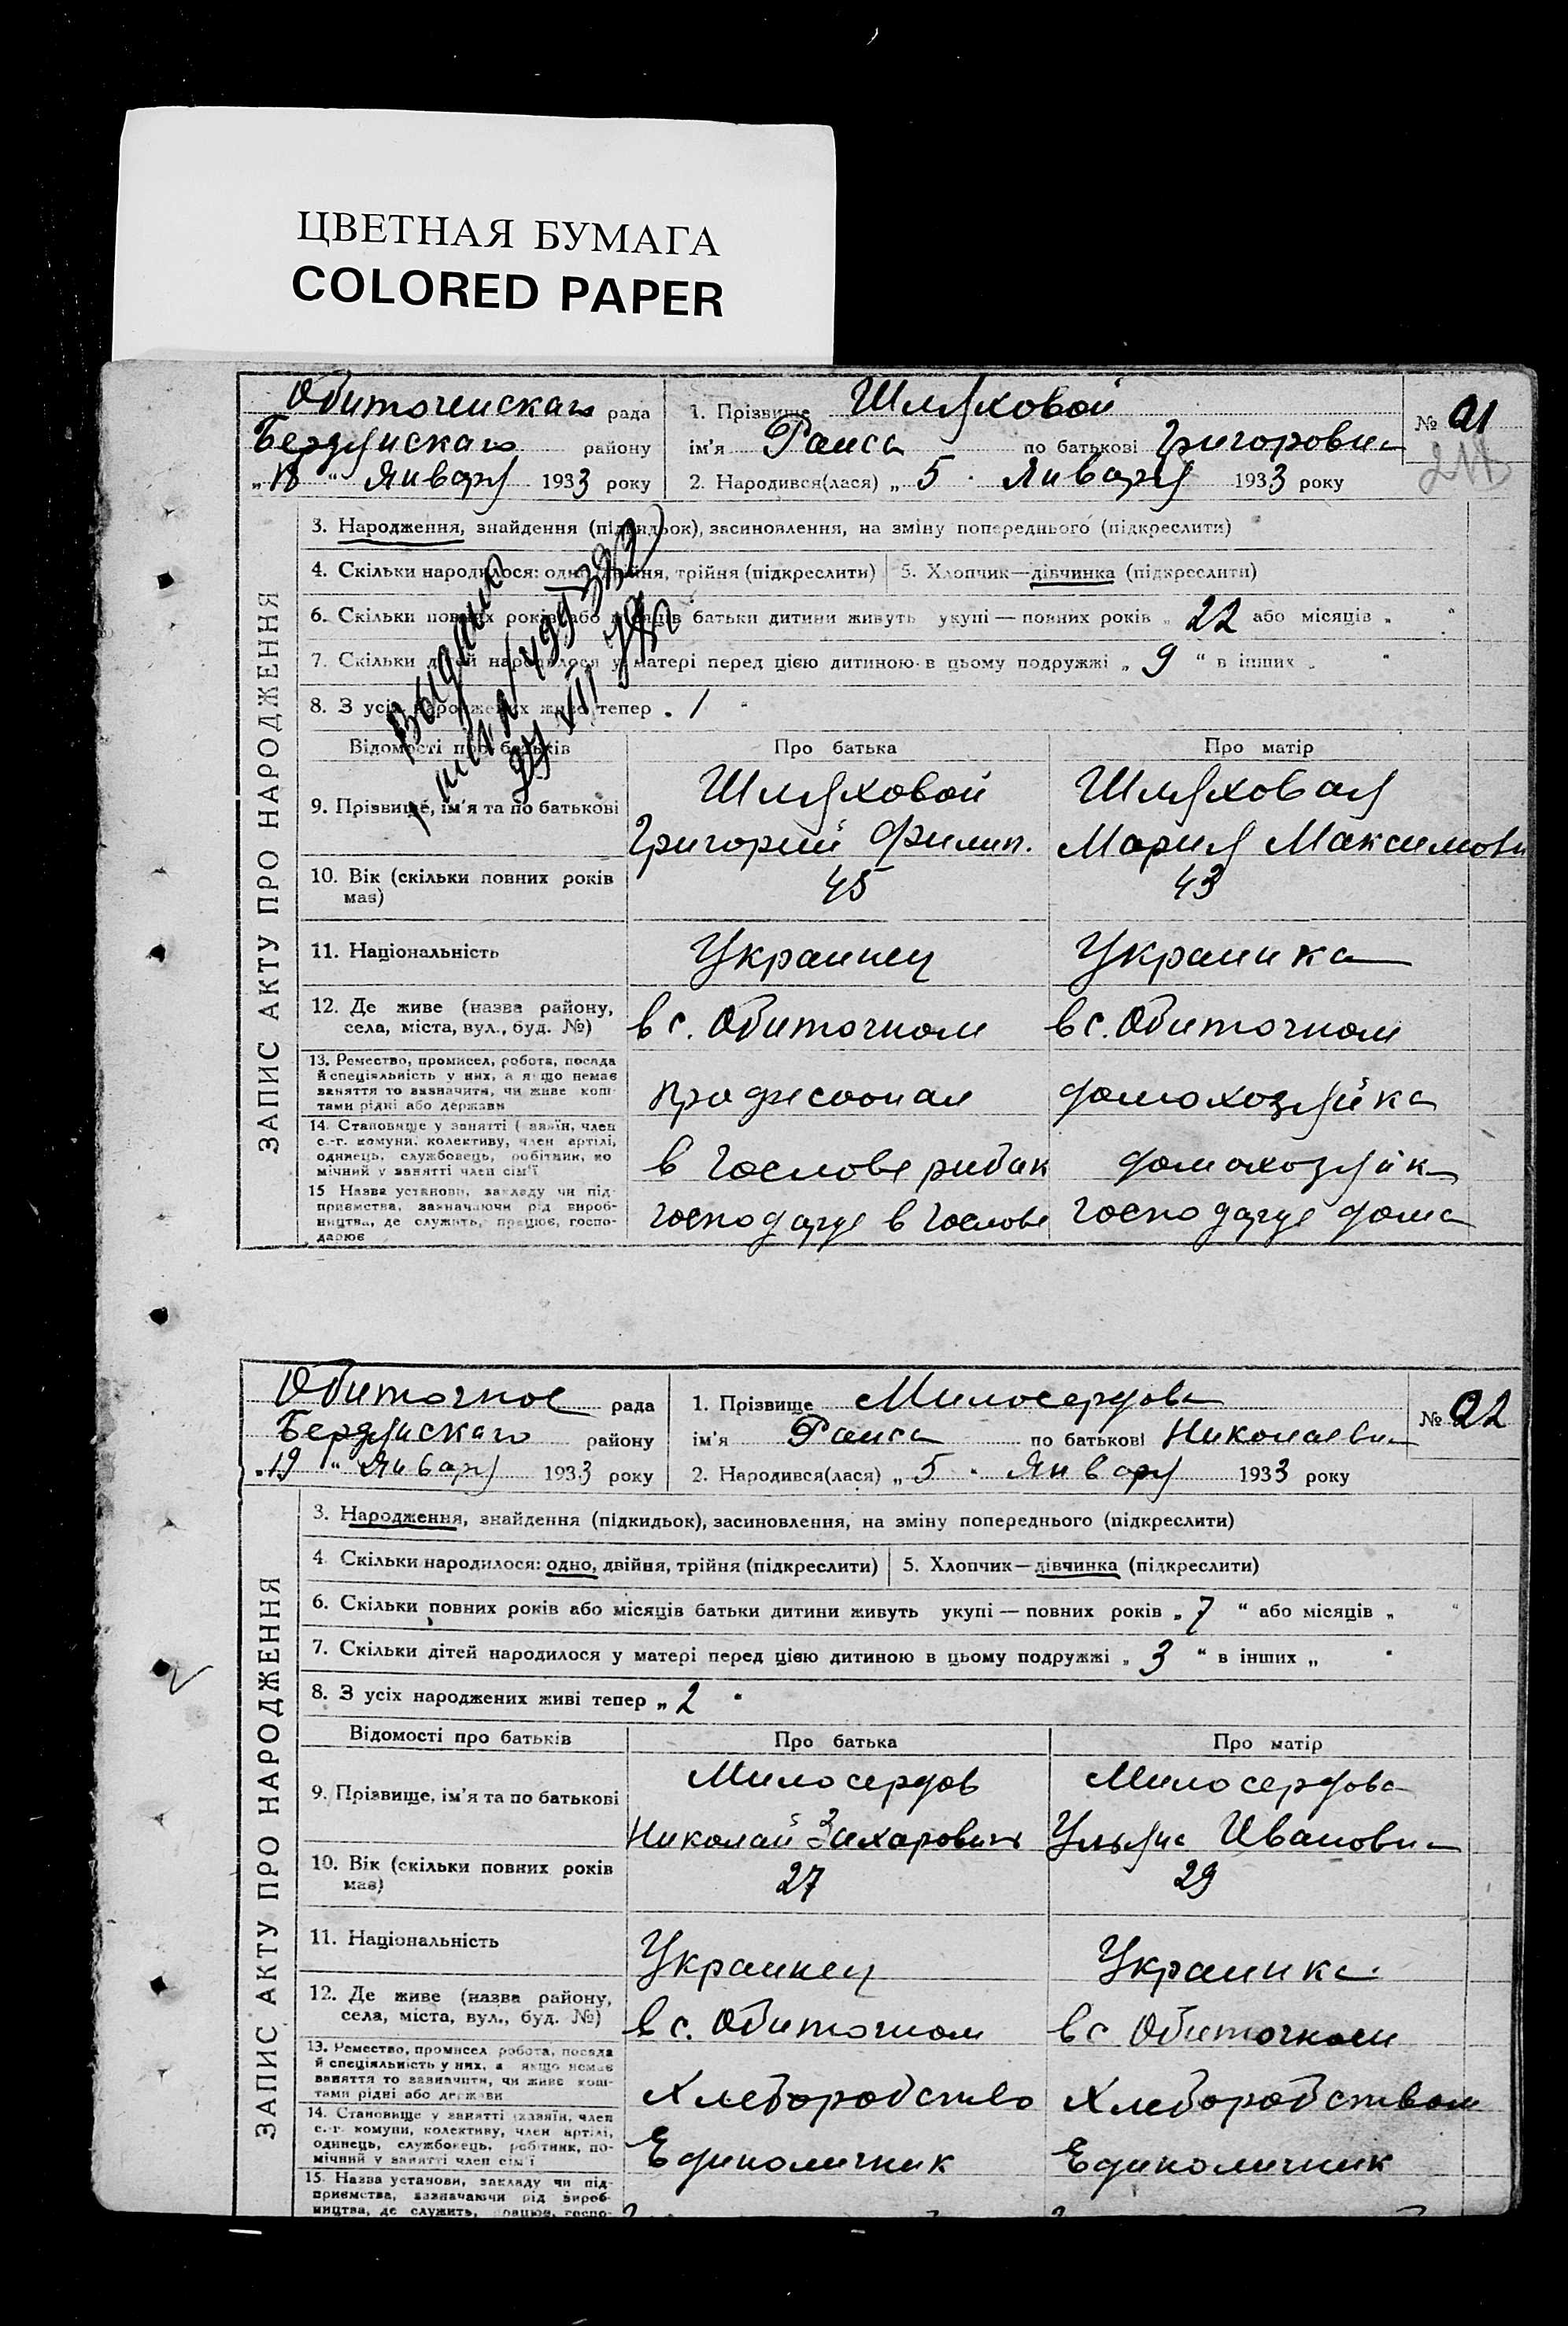 ЦВЕТНАЯ БУМАГА
COLORED PAPER
Обиточенскаго рада
Бердянскаго району
„18“ Январу 1933 року
1. Прізвище Шляховой
ім'я Раиса по батькові Григоровна
2. Народився(лася) „5“ Январу 1933 року
№ 21
ЗАПИС АКТУ ПРО НАРОДЖЕННЯ
3. Народження, знайдення (підкидьок), засиновлення, на зміну попереднього (підкреслити)
4. Скільки народилося: одно, двійня, трійня (підкреслити)
5. Хлопчик—дівчинка (підкреслити)
6. Скільки повних років або місяців батьки дитини живуть укупі — повних років „22 або місяців „ “
7. Скільки дітей народилося у матері перед цією дитиною в цьому подружжі „9“ в інших „ “
8. З усіх народжених живі тепер „1“
Відомості про батьків
Про батька
Про матір
9. Прізвище, ім'я та по батькові
Шляховой
Григорий Филип.
Шляховая
Мария Максимовн
10. Вік (скільки повних років має)
45
43
11. Національність
Украинец
Украинка
12. Де живе (назва району,
села, міста, вул., буд. №)
в с. Обиточном
в с. Обиточном
13. Ремество, промисел, робота, посада
й спеціяльність у них, а якщо немає
заняття то зазначити, чи живе кош-
тами рідні або держави
професионал
домохозяйка
14. Становище у занятті (хазяїн, член
с.-г. комуни, колективу, член артілі,
одинець, службовець, робітник, по
мічний у занятті член сім'ї
в Гослове рибак
домохозяйк
15 Назва установи, закладу чи під-
приємства, зазначаючи рід вироб-
ництва, де служить, працює, госпо-
дарює
господарує в Гослове
господарує дома
Обиточное рада
Бердянскаго району
„19“ Январу 1933 року
1. Прізвище Милосердова
ім'я Раиса по батькові Николаевна
2. Народився(лася) „5“ Январу 1933 року
№ 22
ЗАПИС АКТУ ПРО НАРОДЖЕННЯ
3. Народження, знайдення (підкидьок), засиновлення, на зміну попереднього (підкреслити)
4. Скільки народилося: одно, двійня, трійня (підкреслити)
5. Хлопчик—дівчинка (підкреслити)
6. Скільки повних років або місяців батьки дитини живуть укупі — повних років „7“ або місяців „ “
7. Скільки дітей народилося у матері перед цією дитиною в цьому подружжі „3“ в інших „ “
8. З усіх народжених живі тепер „2“
Відомості про батьків
Про батька
Про матір
9. Прізвище, ім'я та по батькові
Милосердов
Николай Захарович
Милосердова
Ульяна Ивановна
10. Вік (скільки повних років
має)
27
29
11. Національність
Украинец
Украинка
12. Де живе (назва району,
села, міста, вул., буд. №)
в с. Обиточном
в с Обиточном
13. Ремество, промисел робота, посада
й спеціяльність у них, а якщо немає
заняття то зазначити, чи живе кош-
тами рідні або держави
Хлеборобство
Хлеборобством
14. Становище у занятті (хазяїн, член
с.-г. комуни, колективу, член артілі,
одинець, службовець, робітник, по-
мічний у занятті член сім'ї
Единоличник
Единоличник
15. Назва установи, закладу чи під-
приємства, зазначаючи рід вироб-
ництва, де служить, працює, госпо-